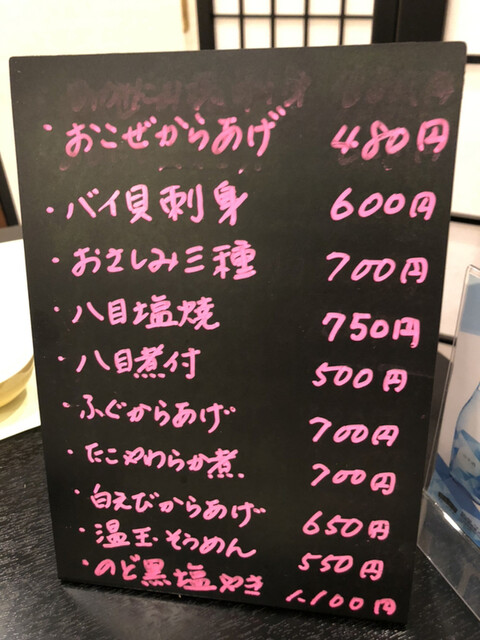 ・おこぜからあげ 480円
・バイ貝刺身 600円
・おさしみ三種 700円
・八目塩焼 750円
・八目煮付 500円
・ふぐからあげ 700円
・たこやわらか煮. 700円
・白えびからあげ 650円
・温玉そうめん 550円
・のど黒塩やき 1.100円